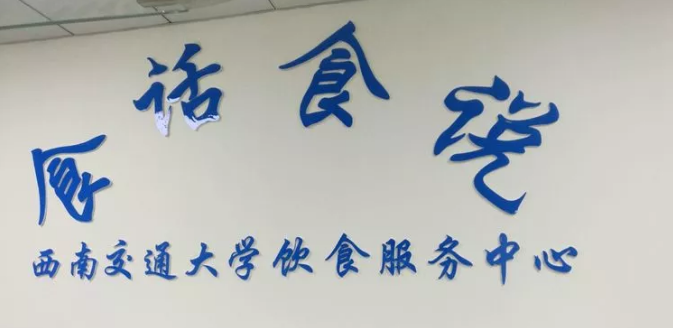 食话食说
西南交通大学饮食服务中心